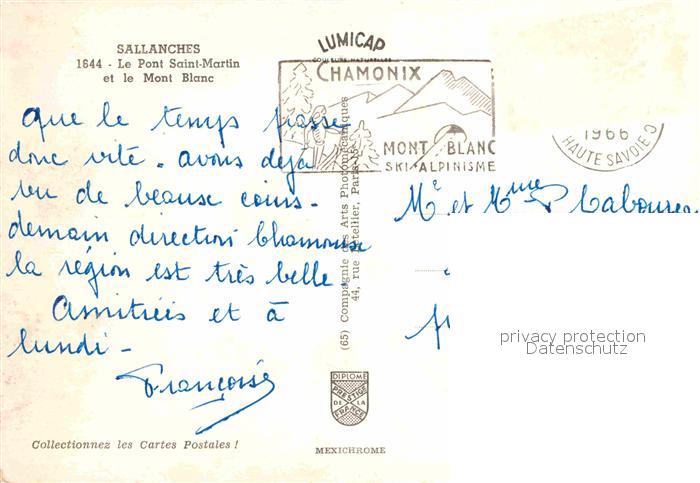 SALLANCHES
1644 - Le Pont Saint-Martin
et le Mont Blanc
LUMICAP
COULEURS NATURELLES
CHAMONIX
MONT BLANC
SKI-ALPINISME
1966
HAUTE SAVOIE
Que le temps passe
donc vite. avons deja
vu de beaux coins.
demain direction Chamonix
la région est très belle
Amitiés et à
lundi -
Françoise
Mr et Mme
privacy protection
Datenschutz
(65) Compagnie des Arts Photomécaniques
44, rue Letellier, Paris-15e
DIPLOME
PRESTIGE
DE LA
FRANCE
Collectionnez les Cartes Postales !
MEXICHROME